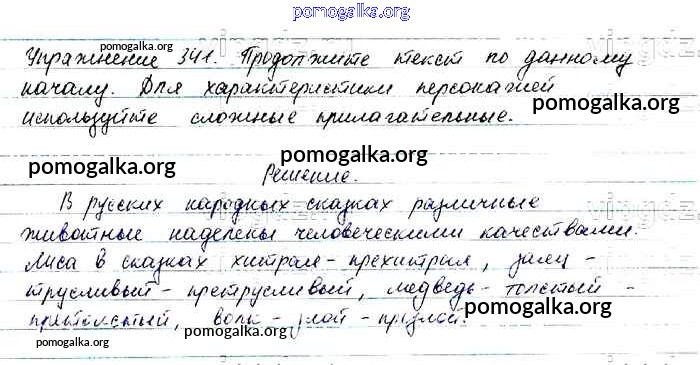 pomogalka.org
pomogalka.org
Упражнение 341. Продолжите текст по данному
началу. Для характеристики персонажей
pomogalka.org
используйте сложные прилагательные.
pomogalka.org
pomogalka.org
Решение.
В русских народных сказках различные
pomogalka.org
pomogalka.org
животные наделены человеческими качествами.
Лиса в сказках хитрая-прехитрая, заяц -
трусливый-претрусливый, медведь- толстый -
pomogalka.org
претолстый, волк - злой - презлой.
pomogalka.org
pomogalka.org